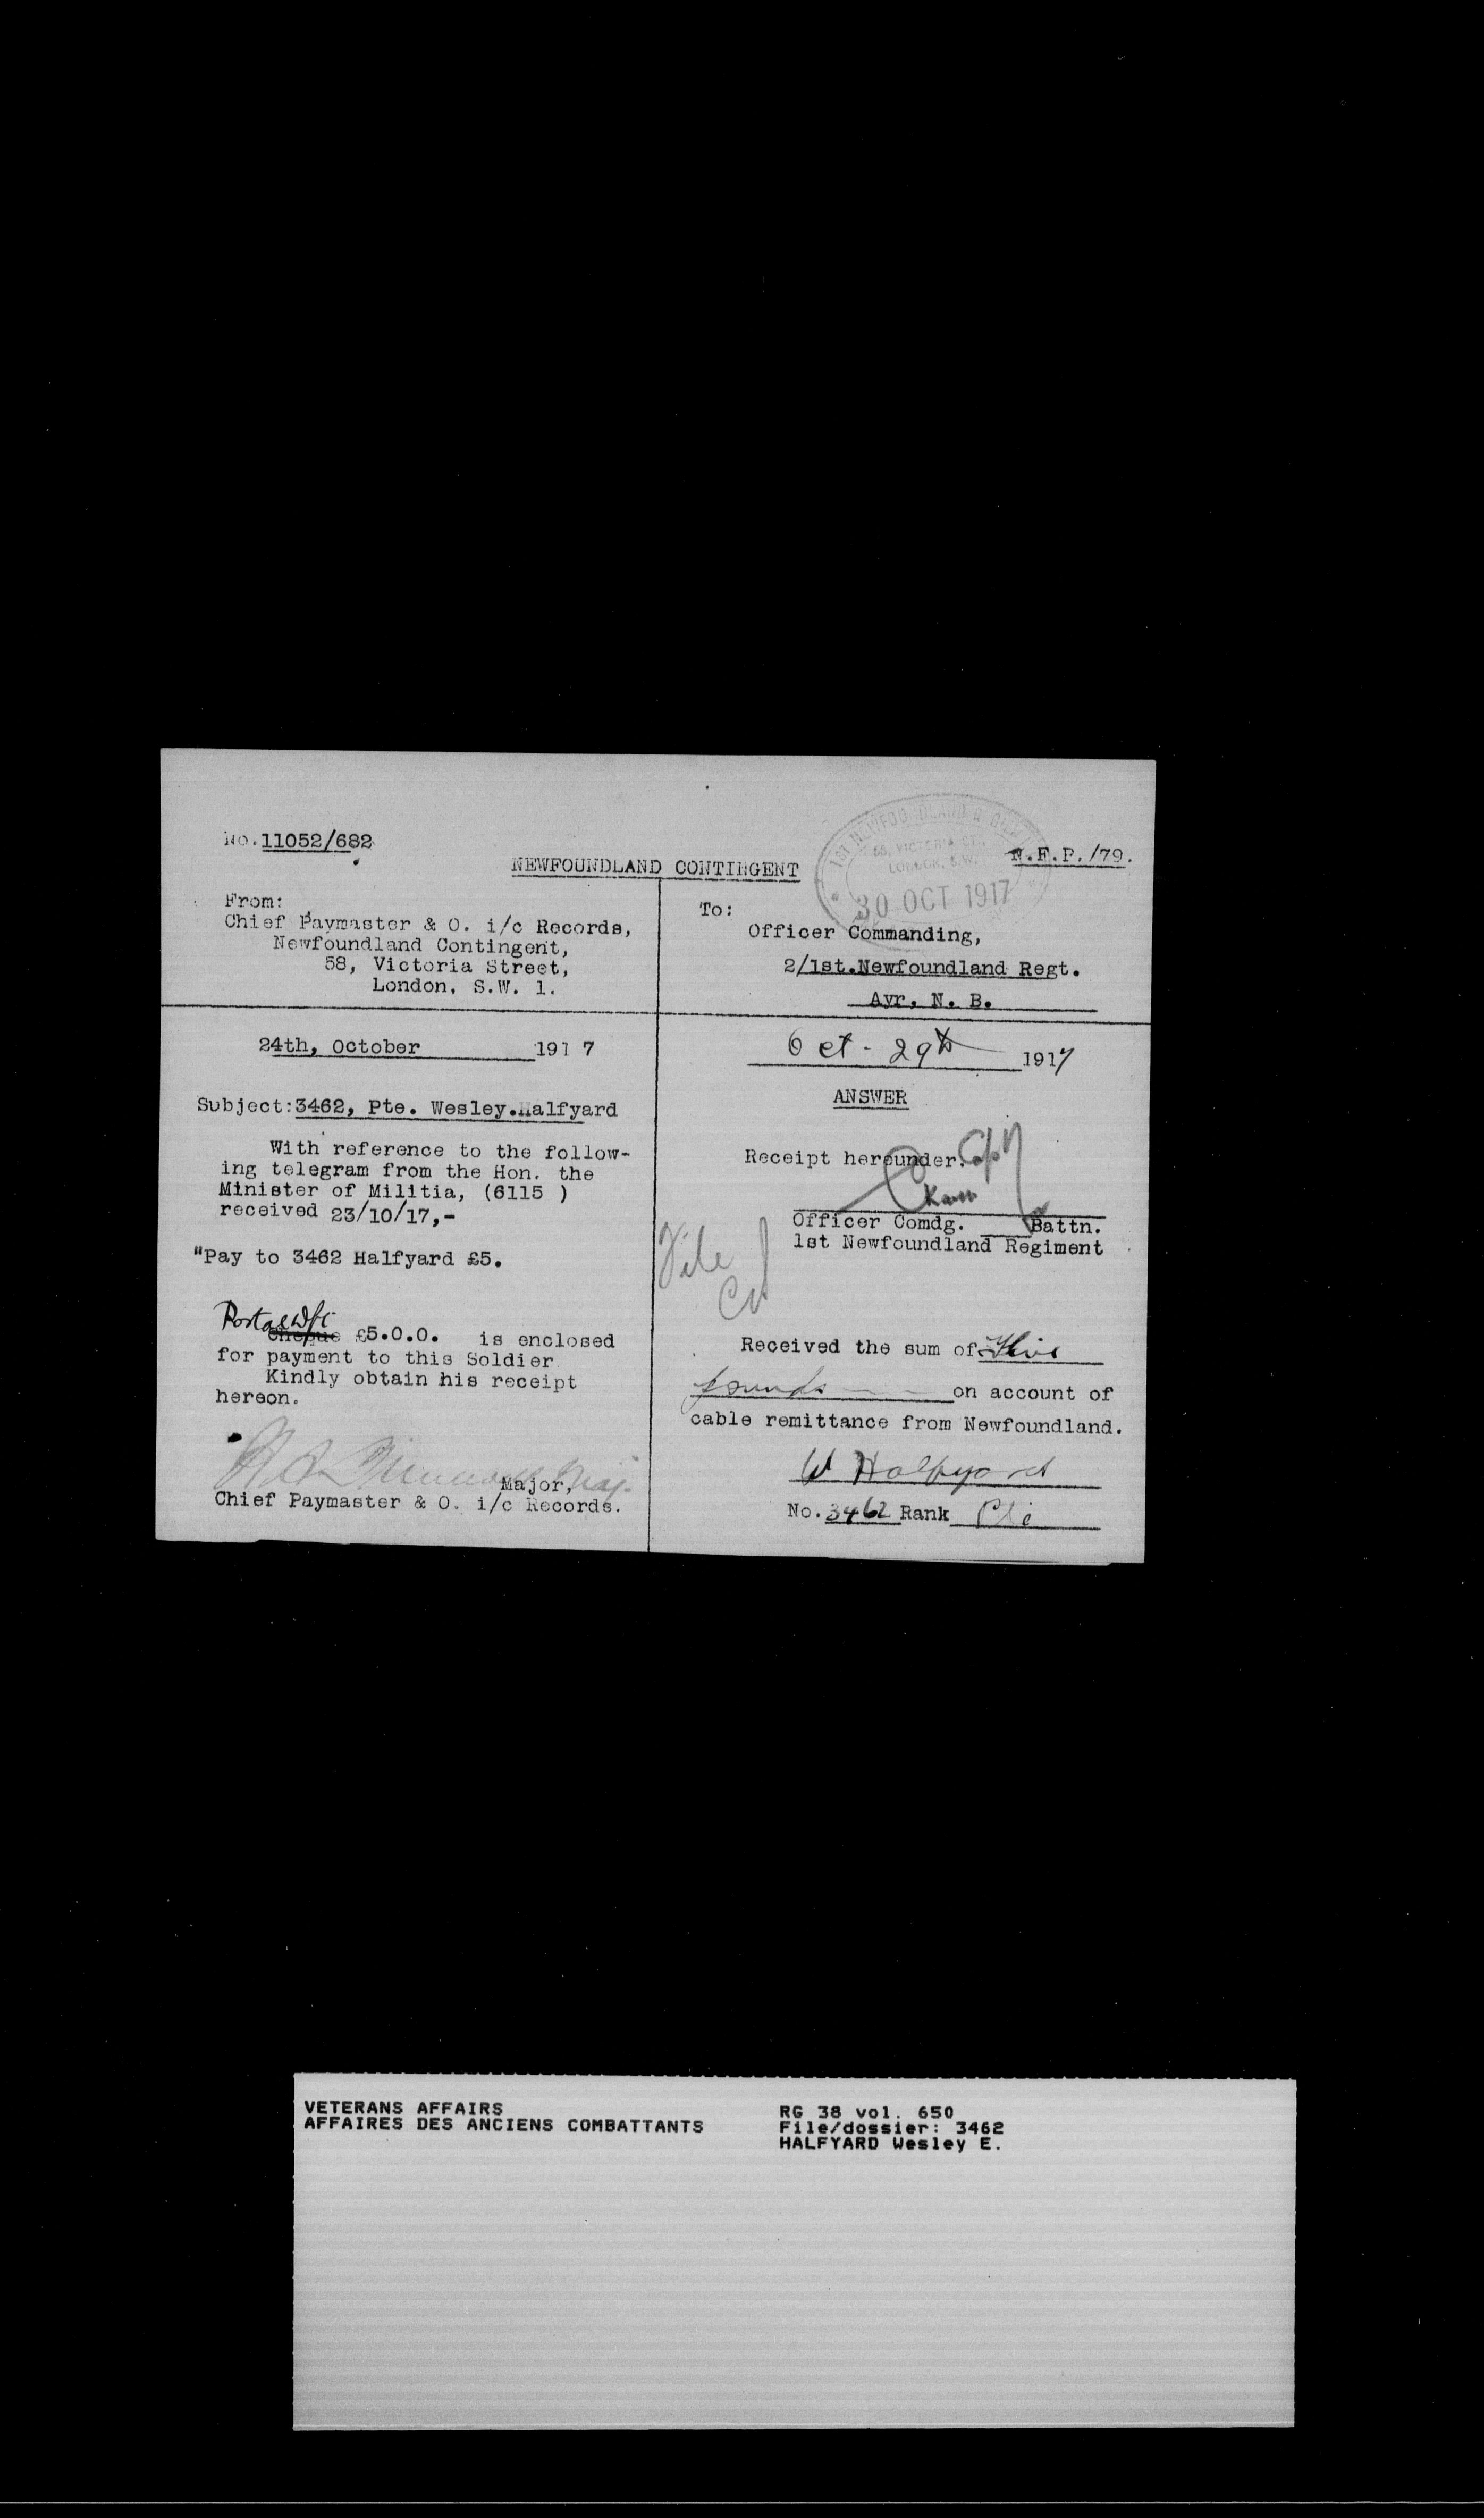 No. 11052/682
NEWFOUNDLAND CONTINGENT
N.F.P./79.
1ST NEWFOUNDLAND
58, VICTORIA ST.,
LONDON, S.W.
30 OCT 1917
From:
Chief Paymaster & O. i/c Records,
Newfoundland Contingent,
58, Victoria Street,
London, S.W. 1.
To:
Officer Commanding,
2/1st.Newfoundland Regt.
Ayr, N. B.
24th, October 1917
Subject:3462, Pte. Wesley.Halfyard
With reference to the follow-
ing telegram from the Hon. the
Minister of Militia, (6115 )
received 23/10/17,-
"Pay to 3462 Halfyard £5.
Postal Dft
Cheque £5.0.0. is enclosed
for payment to this Soldier.
Kindly obtain his receipt
hereon.
Major, Maj.
Chief Paymaster & O. i/c Records.
Oct - 29th 1917
ANSWER
Receipt hereunder.
Capt
Officer Comdg. Battn.
1st Newfoundland Regiment
File
Received the sum of Five
pounds on account of
cable remittance from Newfoundland.
W Halfyard
No. 3462 Rank Pte
VETERANS AFFAIRS
AFFAIRES DES ANCIENS COMBATTANTS
RG 38 vol. 650
File/dossier: 3462
HALFYARD Wesley E.